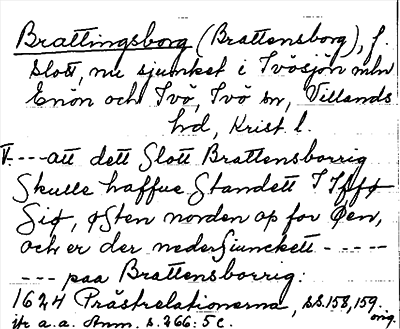 Brattingsborg (Brattensborg), f.
slott, nu sjunket i Ivösjön mln
Enön och Ivö, Ivö sn, Villands
hd, Krist l.
V. --- att dett Slott Brattensborrig
Skulle haffue Standett I Iffø
Siø, østen norden op for Øen,
och er der nedersiunckett - - - - -
--- paa Brattensborrig:
1624 Prästrelationerna, s.s. 158, 159.
jfr a.a. Anm. s. 266: 5 c. orig.